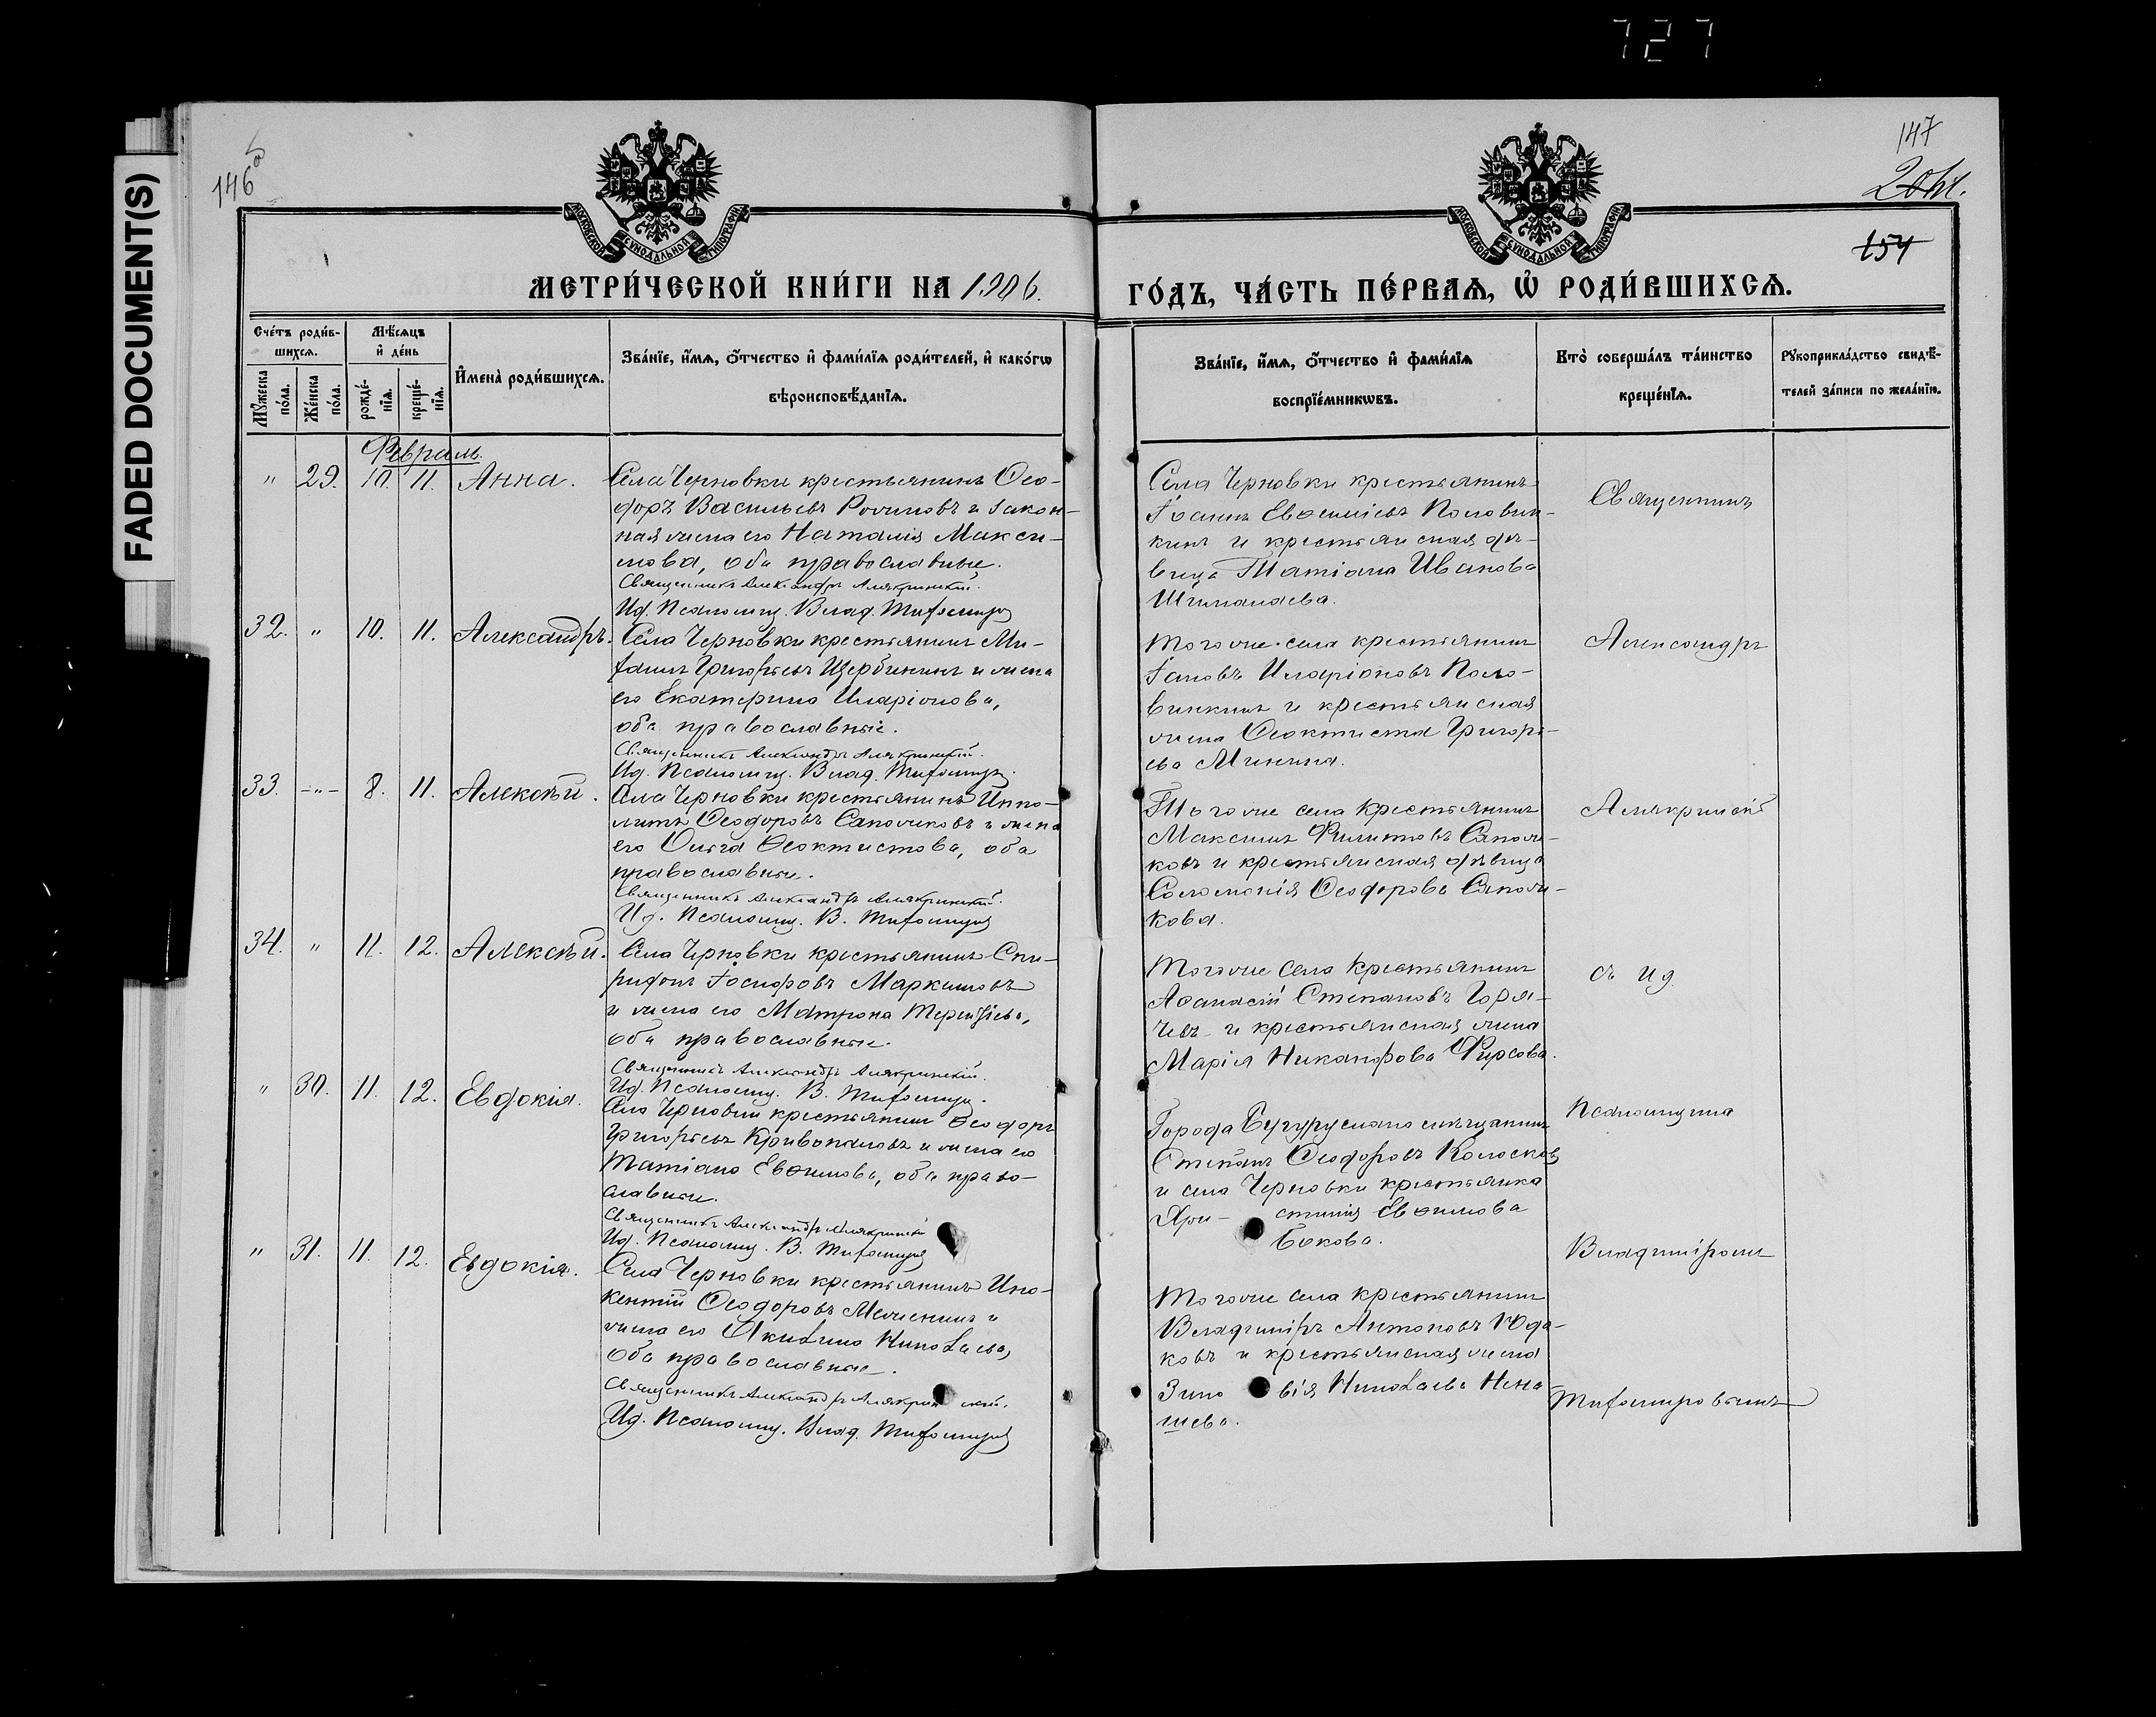 727
FADED DOCUMENT(S)
146
147
154
МОСКОВСКОЙ СУНОДАЛЬНОЙ ТИПОГРАФІИ
МОСКОВСКОЙ СУНОДАЛЬНОЙ ТИПОГРАФІИ
МЕТРИ́ЧЕСКОЙ КНИ́ГИ НА 1906.
ГО́ДЪ, ЧА́СТЬ ПЕ́РВАѦ, Ѡ҆ РОДИ́ВШИХСѦ.
Сче́тъ роди́в-
шихсѧ.
Мꙋ́жеска по́ла.
Же́нска по́ла.
Мѣ́сѧцъ
и҆ де́нь
рожде́-
нїѧ.
креще́-
нїѧ.
И҆мена̀ роди́вшихсѧ.
Зва́нїе, и҆́мѧ, ѻ҆́тчество и҆ фами́лїѧ роди́телей, и҆ како́гѡ
вѣроисповѣ́данїѧ.
Зва́нїе, и҆́мѧ, ѻ҆́тчество и҆ фами́лїѧ
воспрїе́мникѡвъ.
Кто̀ соверша́лъ та́инство
креще́нїѧ.
Рꙋкоприкла́дство свидѣ́-
телей за́писи по жела́нїю.
Февраль.
" 29. 10. 11. Анна.
Села Черновки крестьянинъ Ѳео-
доръ Васильевъ и закон-
ная жена его Наталія Макси-
мова, оба православные.
Священникъ Александръ Алякринскій.
Ид. Псаломщ. Влад. Тихомиров
Села Черновки крестьянинъ
Іоаннъ Евѳиміевъ Половин-
кинъ и крестьянская дѣ-
вица Татіана Иванова
Священникъ
32. " 10. 11. Александръ.
Села Черновки крестьянинъ Ми-
хаилъ Григорьевъ Щербининъ и жена
его Екатерина Иларіонова,
оба православные.
Священникъ Александръ Алякринскій.
Ид. Псаломщ. Влад. Тихомиров.
Тогоже села крестьянинъ
Іаковъ Иларіоновъ Поло-
винкинъ и крестьянская
жена Ѳеоктиста Григорь-
ева Минина.
Александръ
33. -"- 8. 11. Алексѣй.
Села Черновки крестьянинъ Иппо-
литъ Ѳеодоровъ Сапожковъ и жена
его Ольга Ѳеоктистова, оба
православные.
Священникъ Александръ Алякринскій.
Ид. Псаломщ. В. Тихомиров
Тогоже села крестьянинъ
Максимъ Филиповъ Сапож-
ковъ и крестьянская дѣвица
Соломонія Ѳеодорова Сапож-
кова.
Алякринскій
34. " 11. 12. Алексѣй.
Села Черновки крестьянинъ Спи-
ридонъ Іосифовъ Маркеловъ
и жена его Матрона Терентіева,
оба православные.
Священникъ Александръ Алякринскій.
Ид. Псаломщ. В. Тихомиров.
Тогоже села крестьянинъ
Аѳанасій Степановъ Горя-
чевъ и крестьянская жена
Марія Никанорова Фирсова.
съ ид.
" 30. 11. 12. Евдокія.
Села Черновки крестьянинъ Ѳеодоръ
Григорьевъ и жена его
Татіана Евѳимова, оба право-
славные.
Священникъ Александръ Алякринскій
Ид. Псаломщ. В. Тихомиров
Города Бугуруслана мѣщанинъ
Степанъ Ѳеодоровъ Колосковъ
и села Черновки крестьянка
Хри- стинія Евѳимова
Бокова.
Псаломщика
" 31. 11. 12. Евдокія.
Села Черновки крестьянинъ Ино-
кентій Ѳеодоровъ и
жена его Акилина Николаева,
оба православные.
Священникъ Александръ Алякрин скій.
Ид. Псаломщ. Влад. Тихомиров
Тогоже села крестьянинъ
Владиміръ Антоновъ Юда-
ковъ и крестьянская жена
Зино вія Николаева Нена-
шева.
Владиміромъ
Тихомировымъ